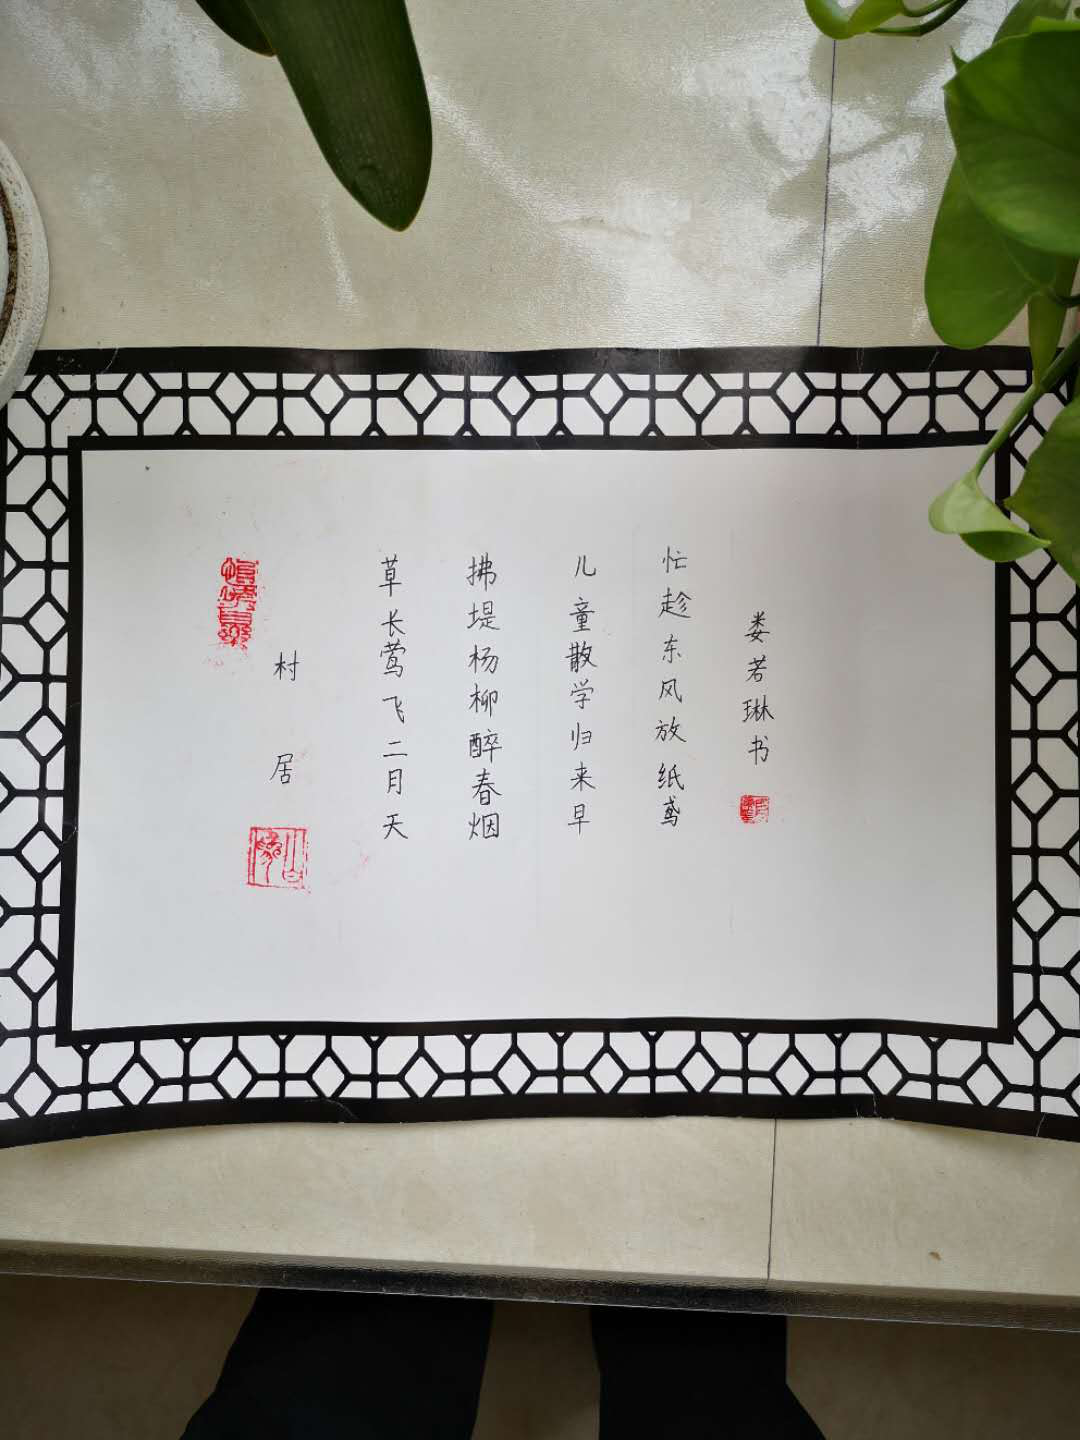 村居
草长莺飞二月天
拂堤杨柳醉春烟
儿童散学归来早
忙趁东风放纸鸢
娄若琳书